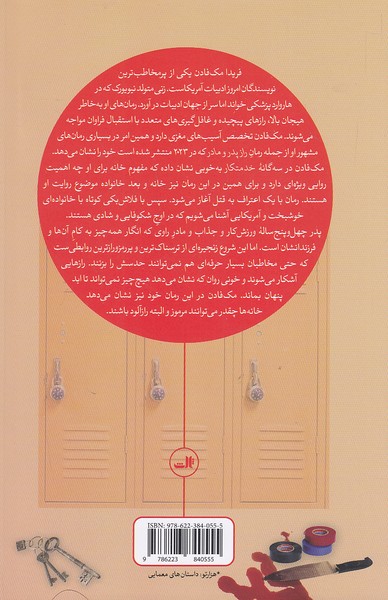 فریدا مک‌فادن یکی از پرمخاطب‌ترین
نویسندگان امروز ادبیات آمریکاست. زنی متولد نیویورک که در
هاروارد پزشکی خواند اما سر از جهان ادبیات در آورد. رمان‌های او به‌خاطر
هیجان بالا، رازهای پیچیده و غافل‌گیری‌های متعدد با استقبال فراوان مواجه
می‌شوند. مک‌فادن تخصص آسیب‌های مغزی دارد و همین امر در بسیاری رمان‌های
مشهور او از جمله رمان راز پدر و مادر که در ۲۰۲۳ منتشر شده است خود را نشان می‌دهد.
مک‌فادن در سه‌گانهٔ خدمتکار به‌خوبی نشان داده که مفهوم خانه برای او چه اهمیت
روایی ویژه‌ای دارد و برای همین در این رمان نیز خانه و بعد خانواده موضوع روایت او
هستند. رمان با یک اعتراف به قتل آغاز می‌شود. سپس با فلاش‌بکی کوتاه با خانواده‌ای
خوشبخت و آمریکایی آشنا می‌شویم که در اوج شکوفایی و شادی هستند.
پدر چهل‌وپنج‌سالهٔ ورزش‌کار و جذاب و مادرِ راوی که انگار همه‌چیز به کام آن‌ها و
فرزندانشان است. اما این شروع زنجیره‌ای از ترسناک‌ترین و پررمزورازترین روابطی‌ست
که حتی مخاطبان بسیار حرفه‌ای هم نمی‌توانند حدسش را بزنند. رازهایی
آشکار می‌شوند و خونی روان که نشان می‌دهد هیچ چیز نمی‌تواند تا ابد
پنهان بماند. مک‌فادن در این رمان خود نیز نشان می‌دهد
خانه‌ها چقدر می‌توانند مرموز و البته رازآلود باشند.
ثالث
ISBN: 978-622-384-055-5
9 786223 840555
*هزارتو: داستان‌های معمایی